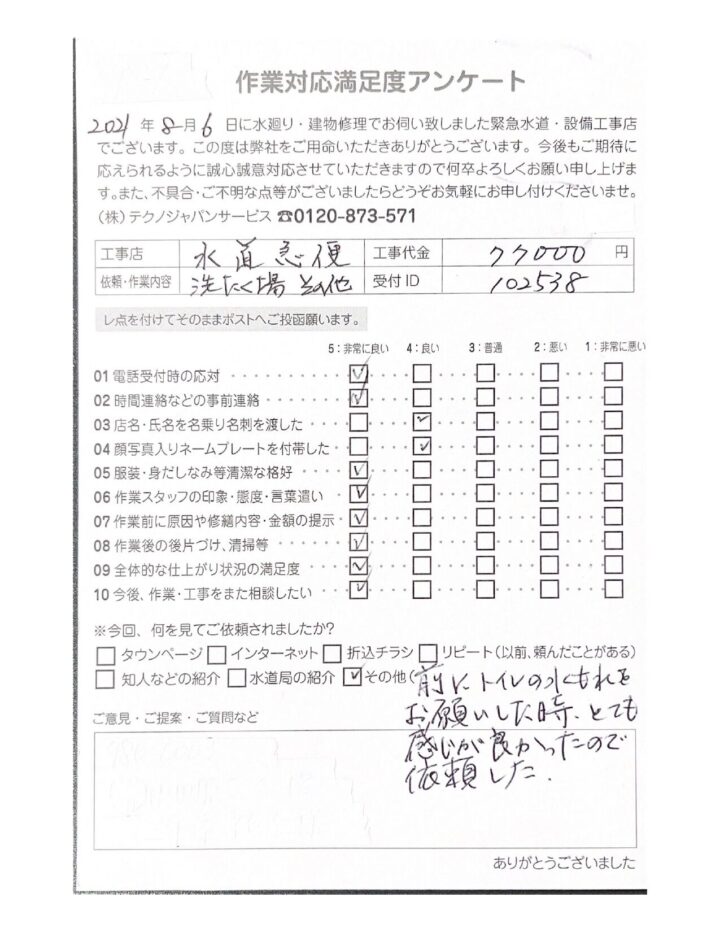 作業対応満足度アンケート
2021年8月6日に水廻り・建物修理でお伺い致しました緊急水道・設備工事店
でございます。この度は弊社をご用命いただきありがとうございます。今後もご期待に
応えられるように誠心誠意対応させていただきますので何卒よろしくお願い申し上げま
す。また、不具合・ご不明な点等がございましたらどうぞお気軽にお申し付けくださいませ。
(株)テクノジャパンサービス ☎0120-873-571
工事店 水道急便 工事代金 77000 円
依頼・作業内容 洗たく場 その他 受付ID 102538
レ点を付けてそのままポストへご投函願います。
5:非常に良い 4:良い 3:普通 2:悪い 1:非常に悪い
01 電話受付時の応対 ····· ☑ ··· ☐ ··· ☐ ··· ☐ ··· ☐
02 時間連絡などの事前連絡 ····· ☑ ··· ☐ ··· ☐ ··· ☐ ··· ☐
03 店名・氏名を名乗り名刺を渡した ··· ☐ ··· ☑ ··· ☐ ··· ☐ ··· ☐
04 顔写真入りネームプレートを付帯した ·· ☐ ··· ☑ ··· ☐ ··· ☐ ··· ☐
05 服装・身だしなみ等清潔な格好 ····· ☑ ··· ☐ ··· ☐ ··· ☐ ··· ☐
06 作業スタッフの印象・態度・言葉遣い ·· ☑ ··· ☐ ··· ☐ ··· ☐ ··· ☐
07 作業前に原因や修繕内容・金額の提示 · ☑ ··· ☐ ··· ☐ ··· ☐ ··· ☐
08 作業後の後片づけ、清掃等 ····· ☑ ··· ☐ ··· ☐ ··· ☐ ··· ☐
09 全体的な仕上がり状況の満足度 ····· ☑ ··· ☐ ··· ☐ ··· ☐ ··· ☐
10 今後、作業・工事をまた相談したい ··· ☑ ··· ☐ ··· ☐ ··· ☐ ··· ☐
※今回、何を見てご依頼されましたか?
☐ タウンページ ☐ インターネット ☐ 折込チラシ ☐ リピート(以前、頼んだことがある)
☐ 知人などの紹介 ☐ 水道局の紹介 ☑ その他(前にトイレの水もれを
お願いした時、とても
感じが良かったので
依頼した.
ご意見・ご提案・ご質問など
ありがとうございました